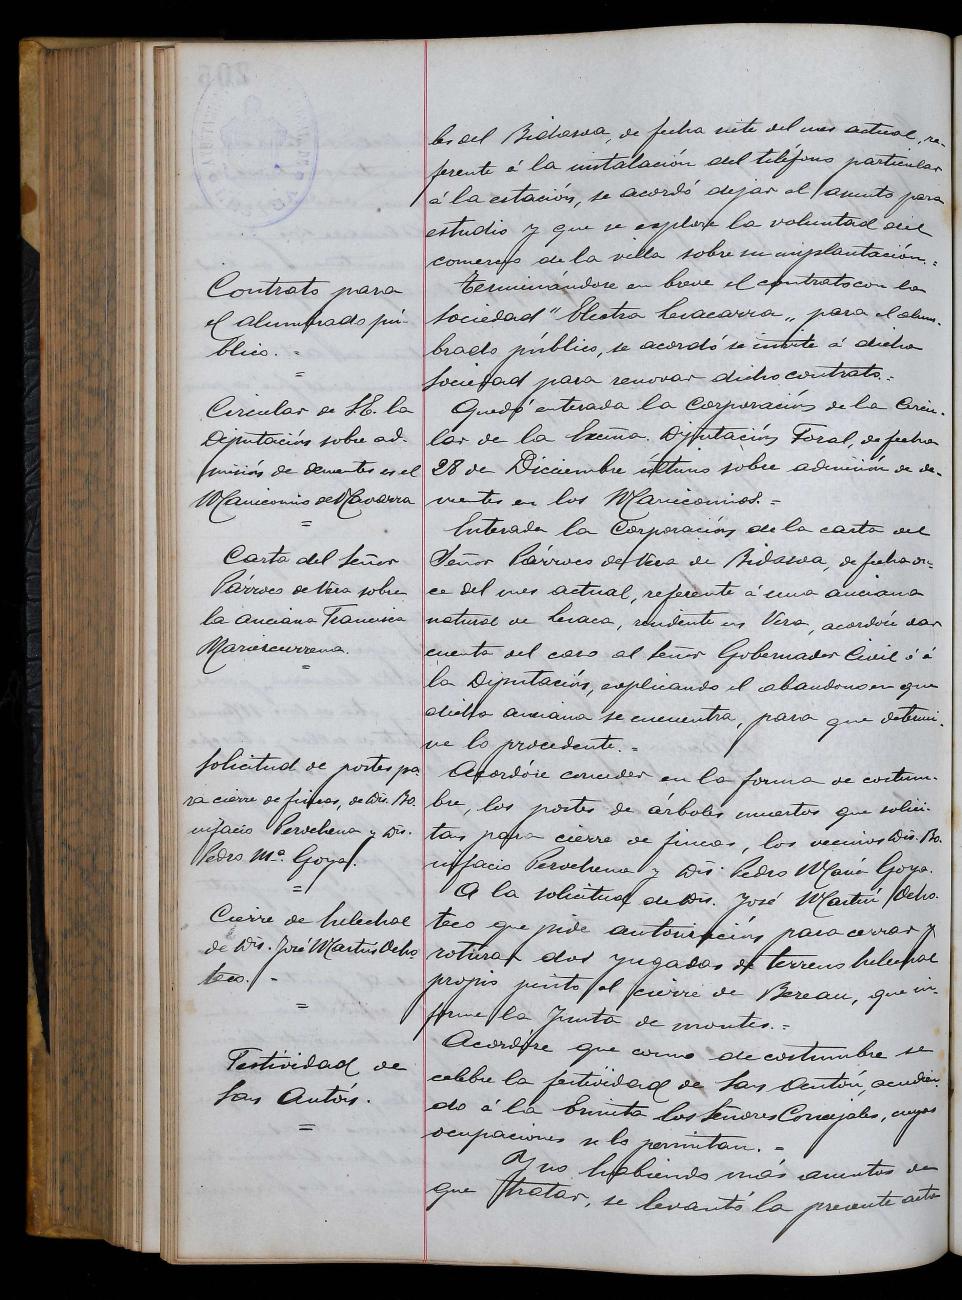 les del Bidasoa, de fecha siete del mes actual, re-
ferente á la instalación del teléfono particular
á la estación, se acordó dejar el asunto para
estudio y que se explore la voluntad del
comercio de la villa sobre su implantación.=
Contrato para
el alumbrado pú-
blico.=
Terminándose en breve el contrato con la
Sociedad "Electra Lesacarra", para el alum-
brado público, se acordó se invite á dicha
Sociedad para renovar dicho contrato.=
Circular de S.E. la
Diputación sobre ad-
misión de dementes en el
Manicomio de Navarra
=
Quedó enterada la Corporación de la Circu-
lar de la Excma. Diputación Foral, de fecha
28 de Diciembre último sobre admisión de de-
mentes en los Manicomios.=
Carta del Señor
Párroco de Vera sobre
la anciana Francisca
Mariezcurrena.
=
Enterada la Corporación de la carta del
Señor Párroco de Vera de Bidasoa, de fecha on-
ce del mes actual, referente á una anciana
natural de Lesaca, residente en Vera, acordóse dar
cuenta del caso al Señor Gobernador Civil ó á
la Diputación, explicando el abandono en que
dicha anciana se encuentra, para que determi-
ne lo procedente.=
Solicitud de postes pa-
ra cierre de fincas, de Dn. Bo-
nifacio Perochena y Dn.
Pedro Mª. Goya.
=
Acordóse conceder en la forma de costum-
bre, los postes de árboles muertos que solici-
tan para cierre de fincas, los vecinos Dn. Bo-
nifacio Perochena y Dn. Pedro María Goya.
Cierre de helechal
de Dn. José Martín Ocho-
teco.-
=
A la solicitud de Dn. José Martín Ocho-
teco que pide autorización para cerrar y
roturar dos yugadas de terreno helechal
propio junto al cierre de Bereau, que in-
forme la Junta de montes.=
Festividad de
San Antón.
=
Acordóse que como de costumbre se
celebre la festividad de San Antón, acudien-
do á la Ermita los Señores Concejales, cuyas
ocupaciones se lo permitan.=
Y no habiendo más asuntos de
que tratar, se levantó la presente acta